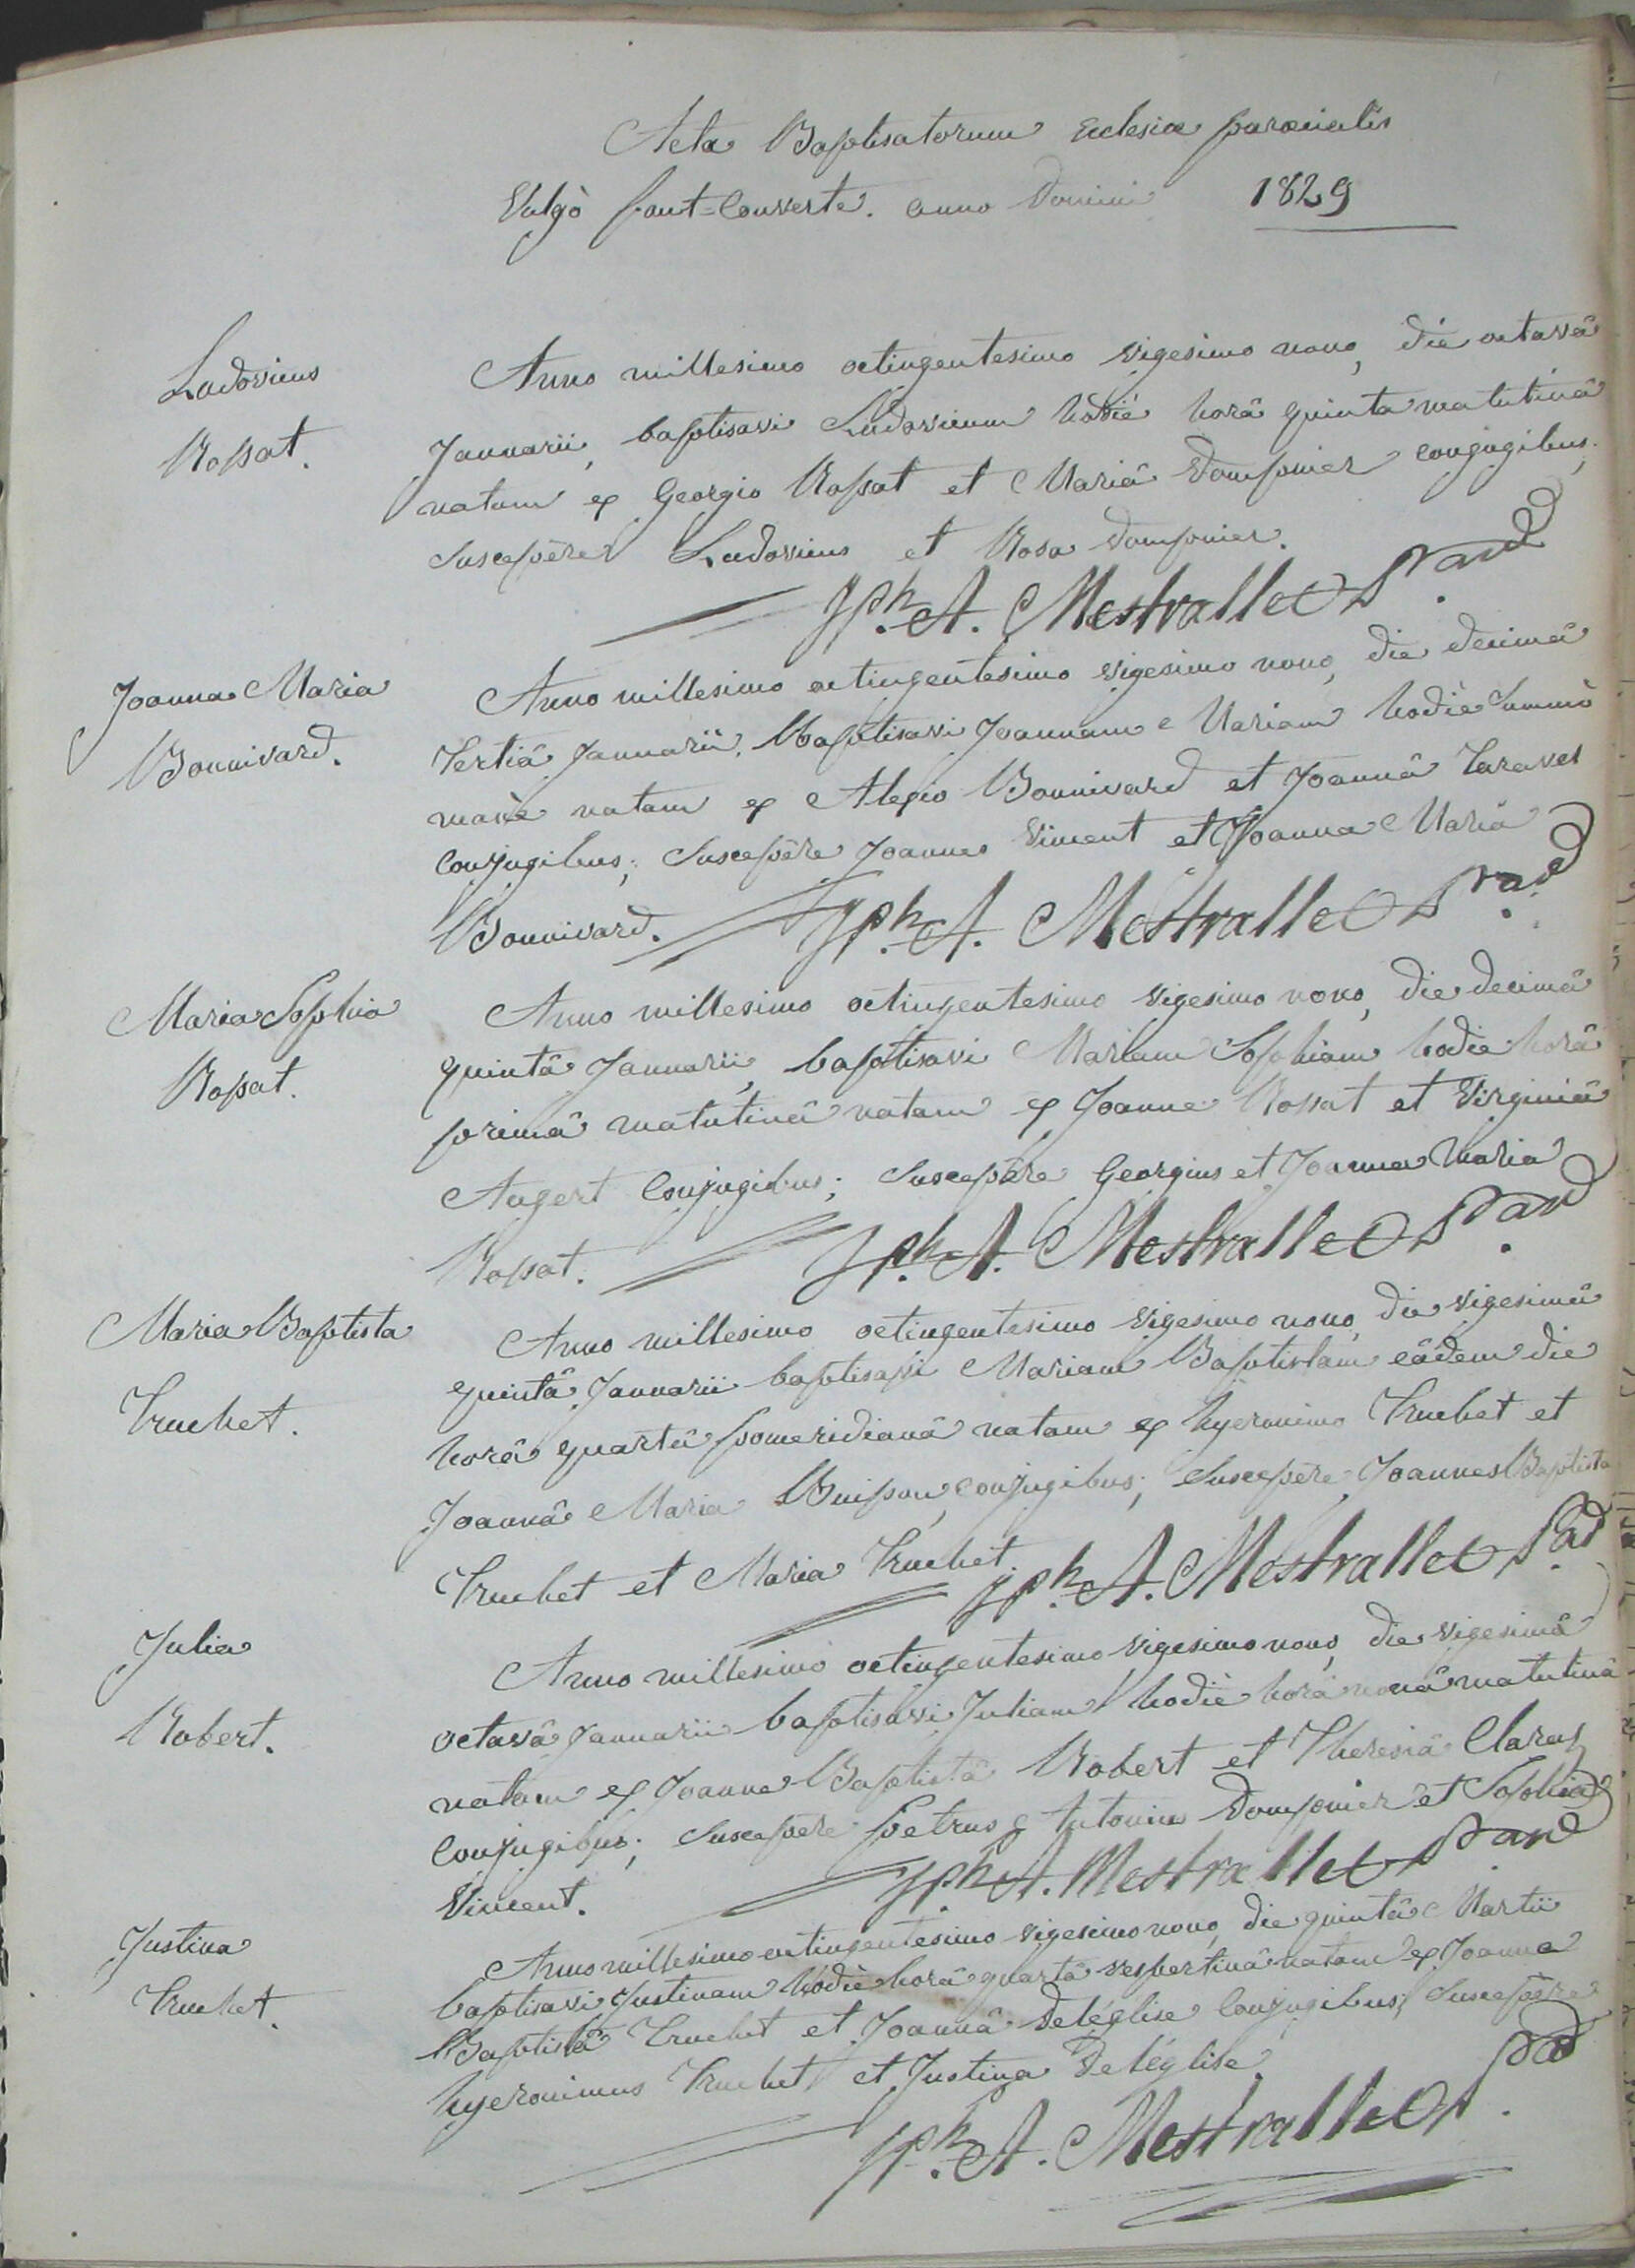 Acta Baptisatorum Ecclesiæ parœcialis
Vulgò font-Couverte. anno Domini 1829
Ludovicus
Rossat.
Anno millesimo octingentesimo vigesimo nono, die octavâ
Januarii, baptisavi Ludovicum hodiè horâ quinta matutinâ
natum ex Georgio Rossat et Mariâ Dompnier conjugibus;
Suscepêre Ludovicus et Rosa Dompnier.
Jph. A. Mestrallet
Joanna Maria
Bonnivard.
Anno millesimo octingentesimo vigesimo nono, die decimâ
Tertiâ Januarii, Baptisavi Joannam Mariam hodiè summò
manè natam ex Alexio Bonnivard et Joannâ Taravel
Conjugibus; Suscepêre Joannes Vincent et Joanna Maria
Bonnivard.
Jph. A. Mestrallet
Maria Sophia
Rossat.
Anno millesimo octingentesimo vigesimo nono, die decimâ
quintâ Januarii, baptisavi Mariam Sophiam hodie horâ
primâ matutinâ natam ex Joanne Rossat et Virginiâ
Augert Conjugibus; Suscepêre Georgius et Joanna Maria
Rossat.
Jph. A. Mestrallet
Maria Baptista
Truchet.
Anno millesimo octingentesimo vigesimo nono, die vigesimâ
quintâ Januarii baptisavi Mariam Baptistam eâdem die
horâ quartâ pomeridianâ natam ex hyeronimo Truchet et
Joannâ Maria Buisson, conjugibus; Suscepêre Joannes Baptista
Truchet et Maria Truchet.
Jph. A. Mestrallet
Julia
Robert.
Anno millesimo octingentesimo vigesimo nono, die vigesimâ
octavâ Januarii baptisavi Juliam hodiè horâ nonâ matutinâ
natam ex Joanne Baptistâ Robert et Theresiâ Claraz
Conjugibus; Suscepêre Petrus Antonius Dompnier et Sophia
Vincent.
Jph. A. Mestrallet
Justina
Truchet.
Anno millesimo octingentesimo vigesimo nono, die quintâ Martii
baptisavi Justinam hodiè horâ quartâ vespertinâ natam ex Joanne
Baptistâ Truchet et Joannâ Deléglise Conjugibus; Suscepêre
hyeronimus Truchet et Justina Deléglise.
Jph. A. Mestrallet